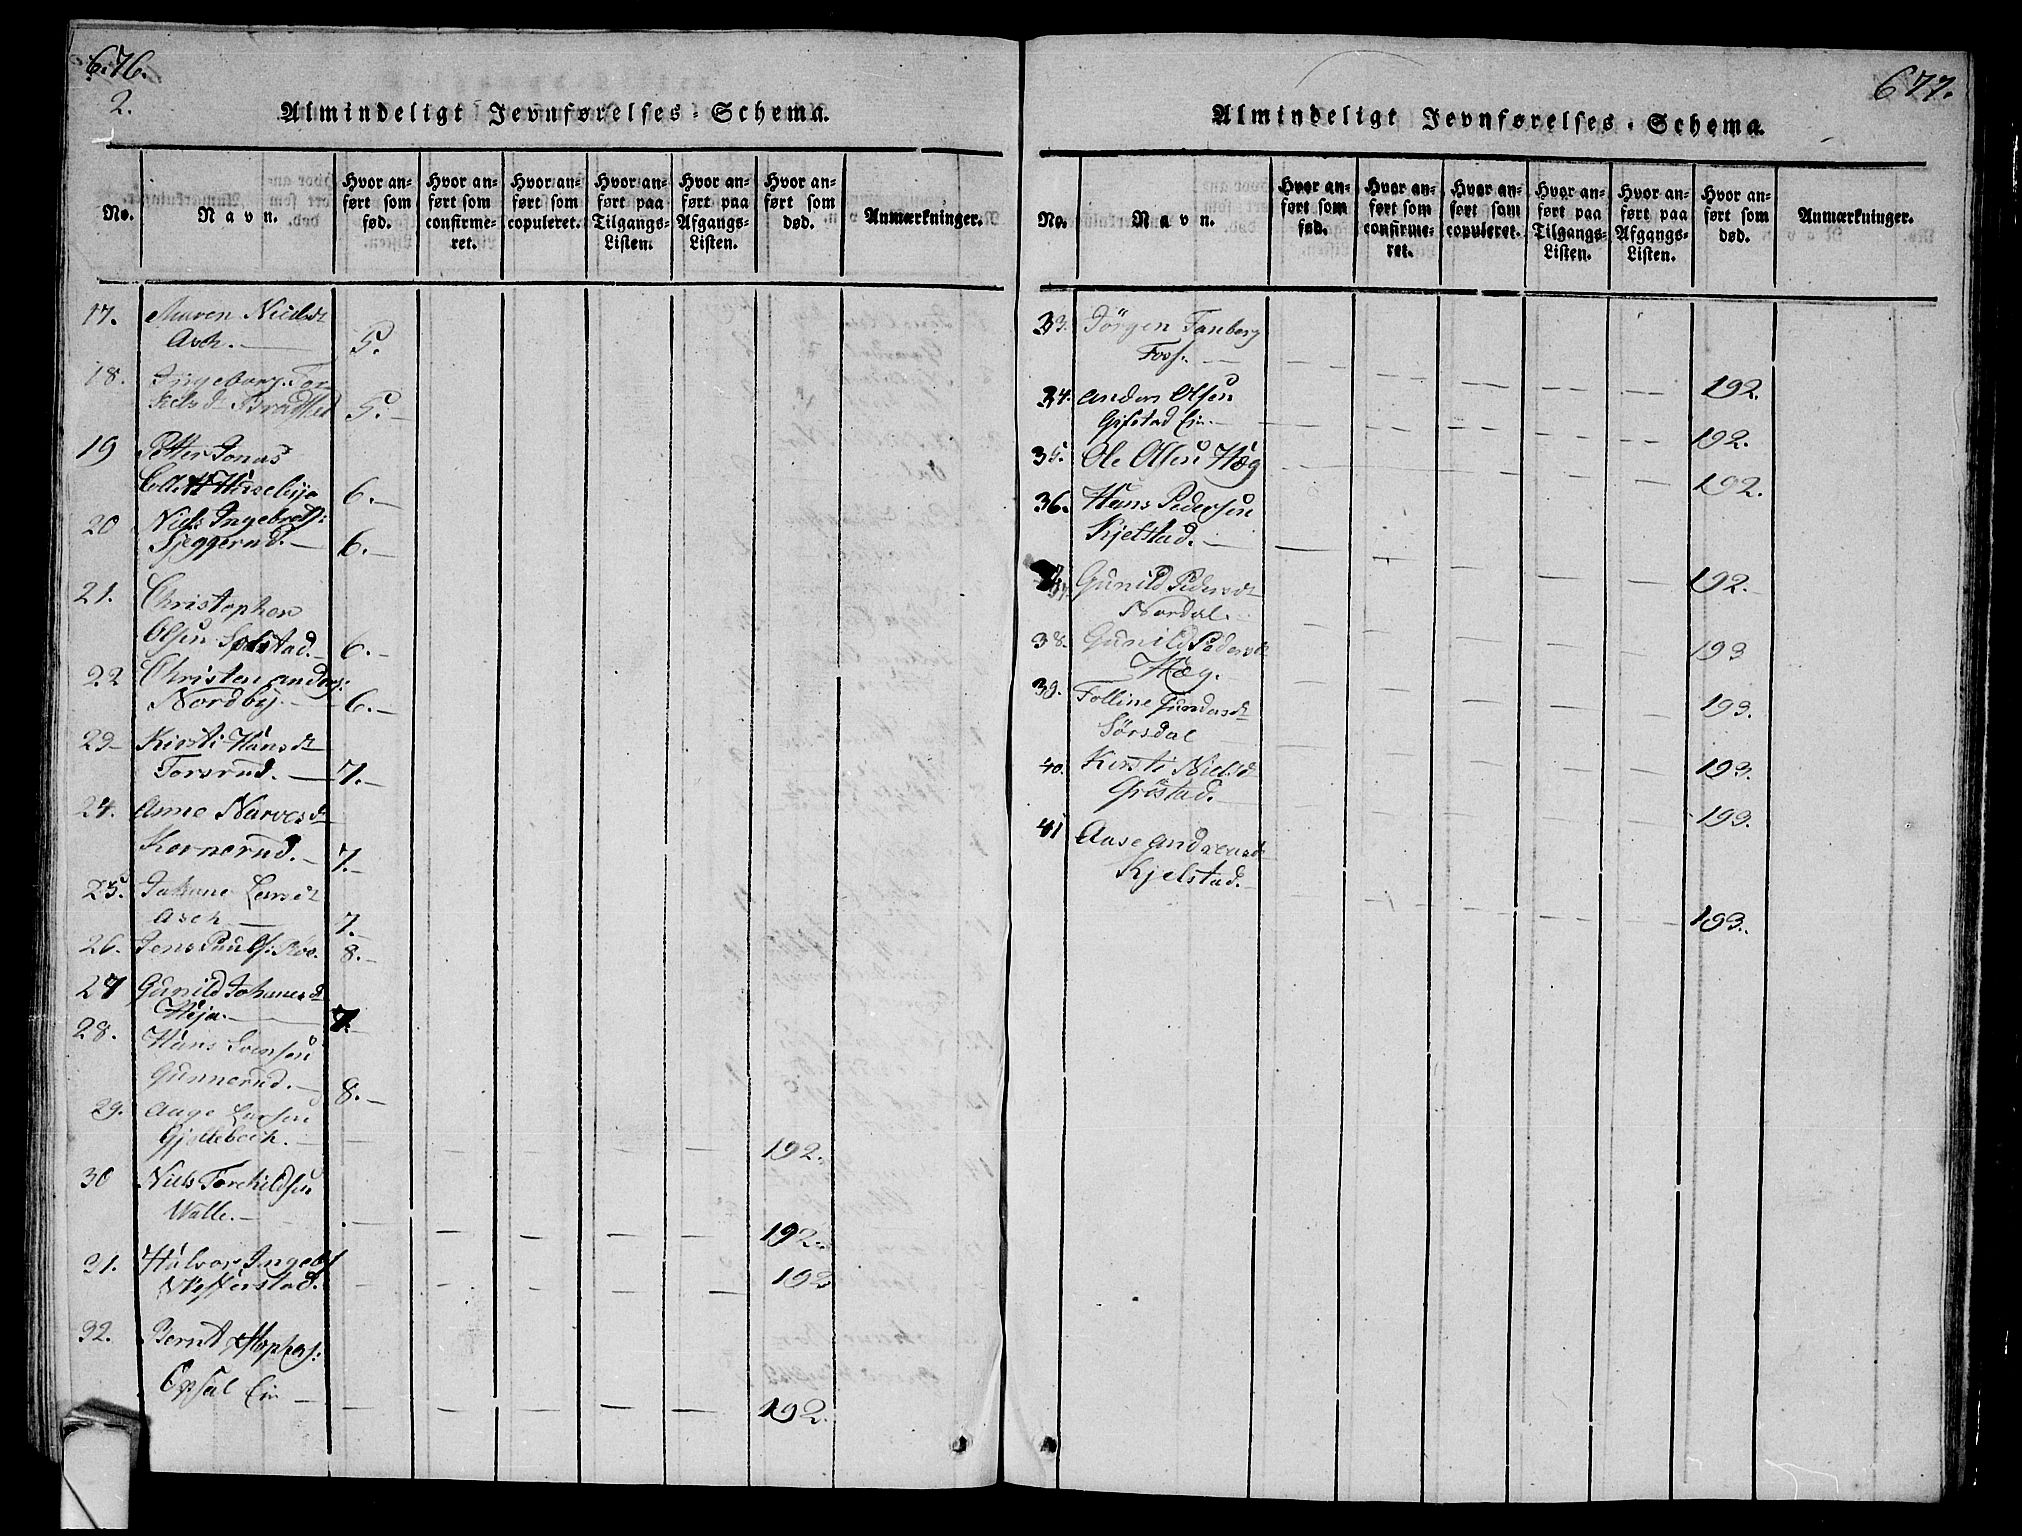 676.
2.
Almindeligt Jevnførelses-Schema.
No.
Navn.
Hvor anført som fød.
Hvor anført som confirmeret.
Hvor anført som copuleret.
Hvor anført paa Tilgangs-Listen.
Hvor anført paa Afgangs-Listen.
Hvor anført som død.
Anmærkninger.
17. Maren Nielsd
Asch. — 5.
18. Ingeborg Tor-
kelsd Bradsted 5. —
19 Petter Jonas
Collett Hirsebye 6. —
20 Niels Ingebrets:
Sjeggerud. — 6. —
21. Christopher
Olsen Solstad. — 6. —
22 Christen Anders:
Nordby. — 6. —
23 — Kirsti Hansd
Torsrud. — 7. —
24. Anne Narvesd
Kornerud. — 7. —
25. Johane Larsd
Asch — 7. —
26. Jens Pauls: Aos. 8. —
27 Gunild Johanesd
Heja. — 7. —
28. Hans Svensen
Gunnerud. — 8. —
29. Aage Larsen
Gjellebech. — 192.
30 Niels Torchildsen
Walle. — 192.
31. Halvor Ingebs
Wefferstad. 192
32. Bernt Stophers:
Opsal Ein — 192.
677.
Almindeligt Jevnførelses-Schema.
No.
Navn.
Hvor anført som fød.
Hvor anført som confirmeret.
Hvor anført som copuleret.
Hvor anført paa Tilgangs-Listen.
Hvor anført paa Afgangs-Listen.
Hvor anført som død.
Anmærkninger.
33. Jörgen Tanberg
Foss. — 192.
34. Anders Olsen
Gifstad Ein. — 192.
35. Ole Olsen Hæg 192.
36. Hans Pedersen
Kjelstad. — 192.
37. Gunild Pedersd
Nordal. 193
38. Gunild Pedersd
Hæg. 193.
39. Folline Gundersd
Sörsdal 193.
40. Kirsti Nielsd
Gröstad. 193.
41 Aase Andreasd
Kjelstad. — 193.